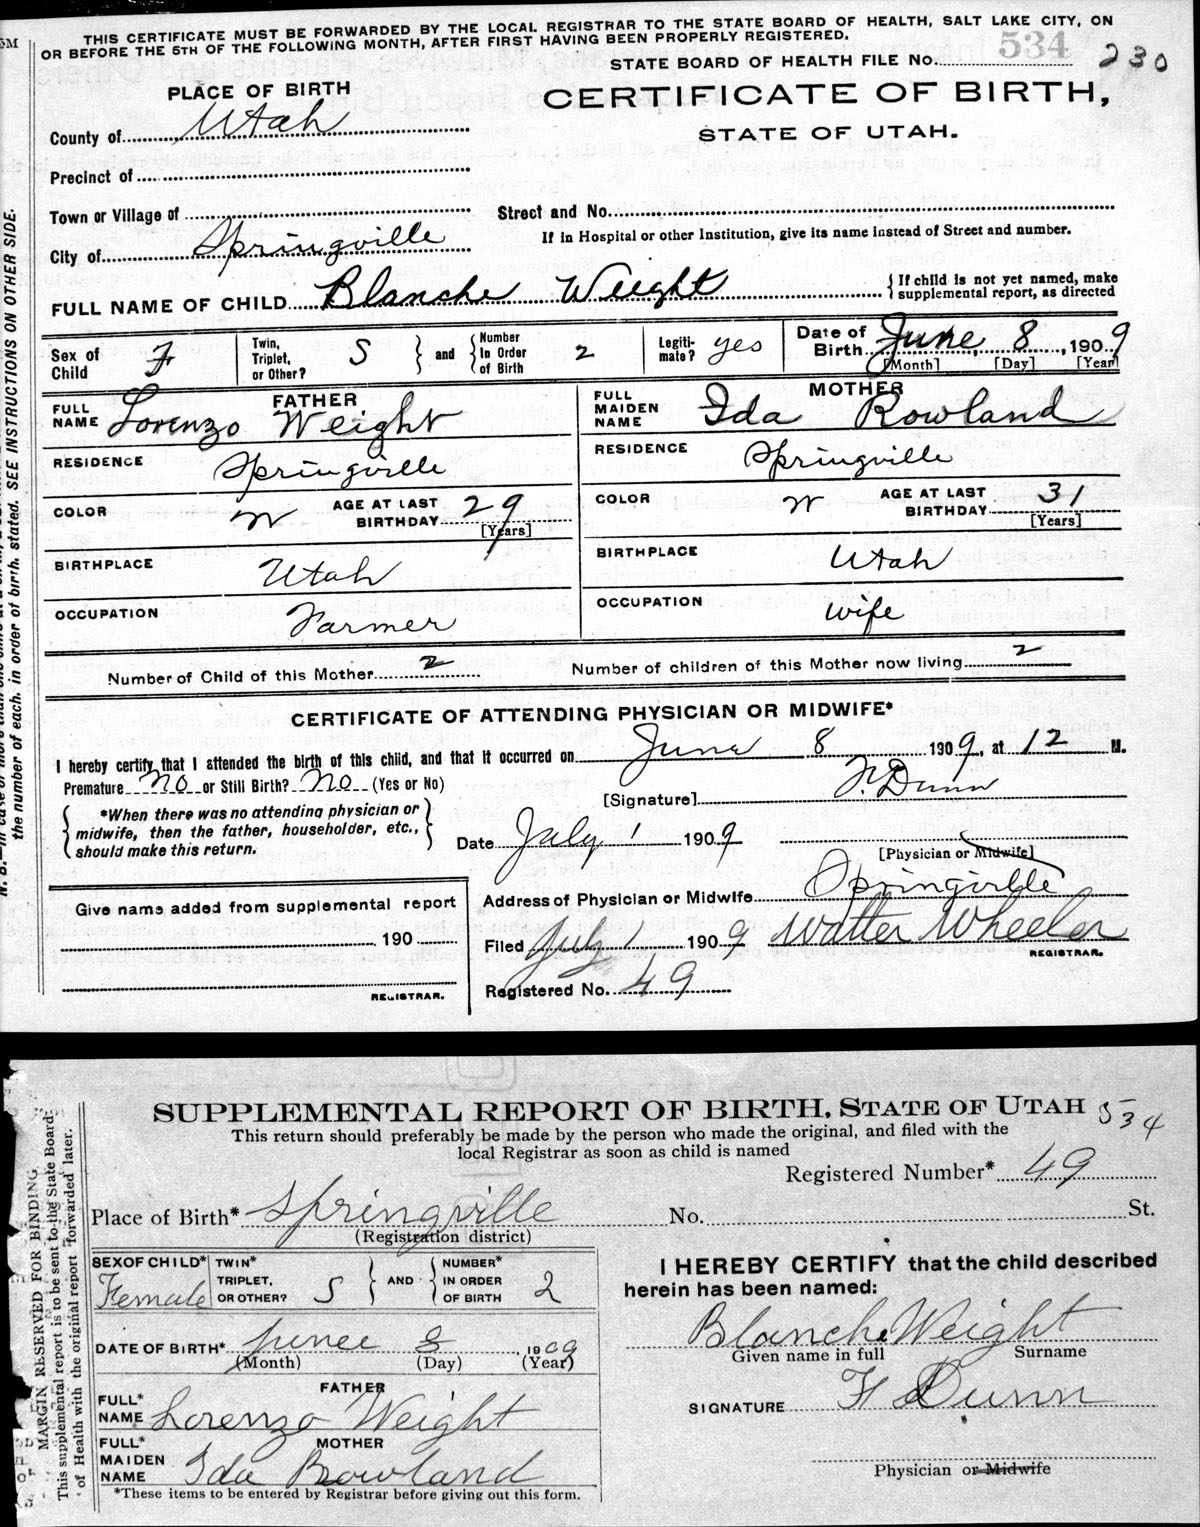 THIS CERTIFICATE MUST BE FORWARDED BY THE LOCAL REGISTRAR TO THE STATE BOARD OF HEALTH, SALT LAKE CITY, ON
OR BEFORE THE 5TH OF THE FOLLOWING MONTH, AFTER FIRST HAVING BEEN PROPERLY REGISTERED.
STATE BOARD OF HEALTH FILE No. 534 230
PLACE OF BIRTH
CERTIFICATE OF BIRTH,
STATE OF UTAH.
County of Utah
Precinct of
Town or Village of
Street and No.
City of Springville
If in Hospital or other Institution, give its name instead of Street and number.
FULL NAME OF CHILD Blanche Weight
{ If child is not yet named, make
supplemental report, as directed
Sex of Child F
Twin, Triplet, or Other? S } and { Number In Order of Birth 2
Legiti-mate? yes
Date of Birth June 8, 1909
[Month] [Day] [Year]
FATHER
FULL NAME Lorenzo Weight
MOTHER
FULL MAIDEN NAME Ida Rowland
RESIDENCE Springville
RESIDENCE Springville
COLOR W AGE AT LAST BIRTHDAY 29 [Years]
COLOR W AGE AT LAST BIRTHDAY 31 [Years]
BIRTHPLACE Utah
BIRTHPLACE Utah
OCCUPATION Farmer
OCCUPATION Wife
Number of Child of this Mother 2 Number of children of this Mother now living 2
CERTIFICATE OF ATTENDING PHYSICIAN OR MIDWIFE*
I hereby certify that I attended the birth of this child, and that it occurred on June 8 1909, at 12 M.
Premature No or Still Birth? No (Yes or No)
[Signature] F. Dunn
{ *When there was no attending physician or
midwife, then the father, householder, etc.,
should make this return. }
Date July 1 1909
[Physician or Midwife]
Address of Physician or Midwife Springville
Give name added from supplemental report
190
REGISTRAR.
Filed July 1 1909 Walter Wheeler
REGISTRAR.
Registered No. 49
the number of each, in order of birth, stated. SEE INSTRUCTIONS ON OTHER SIDE.
SUPPLEMENTAL REPORT OF BIRTH, STATE OF UTAH 534
This return should preferably be made by the person who made the original, and filed with the
local Registrar as soon as child is named
Registered Number* 49
Place of Birth* Springville No. St.
(Registration district)
SEX OF CHILD* Female
TWIN* TRIPLET, OR OTHER? S } AND { NUMBER* IN ORDER OF BIRTH 2
I HEREBY CERTIFY that the child described
herein has been named:
DATE OF BIRTH* June 8, 1909
(Month) (Day) (Year)
Blanche Weight
Given name in full Surname
FATHER
FULL* NAME Lorenzo Weight
SIGNATURE F Dunn
MOTHER
FULL* MAIDEN NAME Ida Rowland
Physician or Midwife
*These items to be entered by Registrar before giving out this form.
MARGIN RESERVED FOR BINDING
This supplemental report is to be sent to the State Board
of Health with the original report forwarded later.